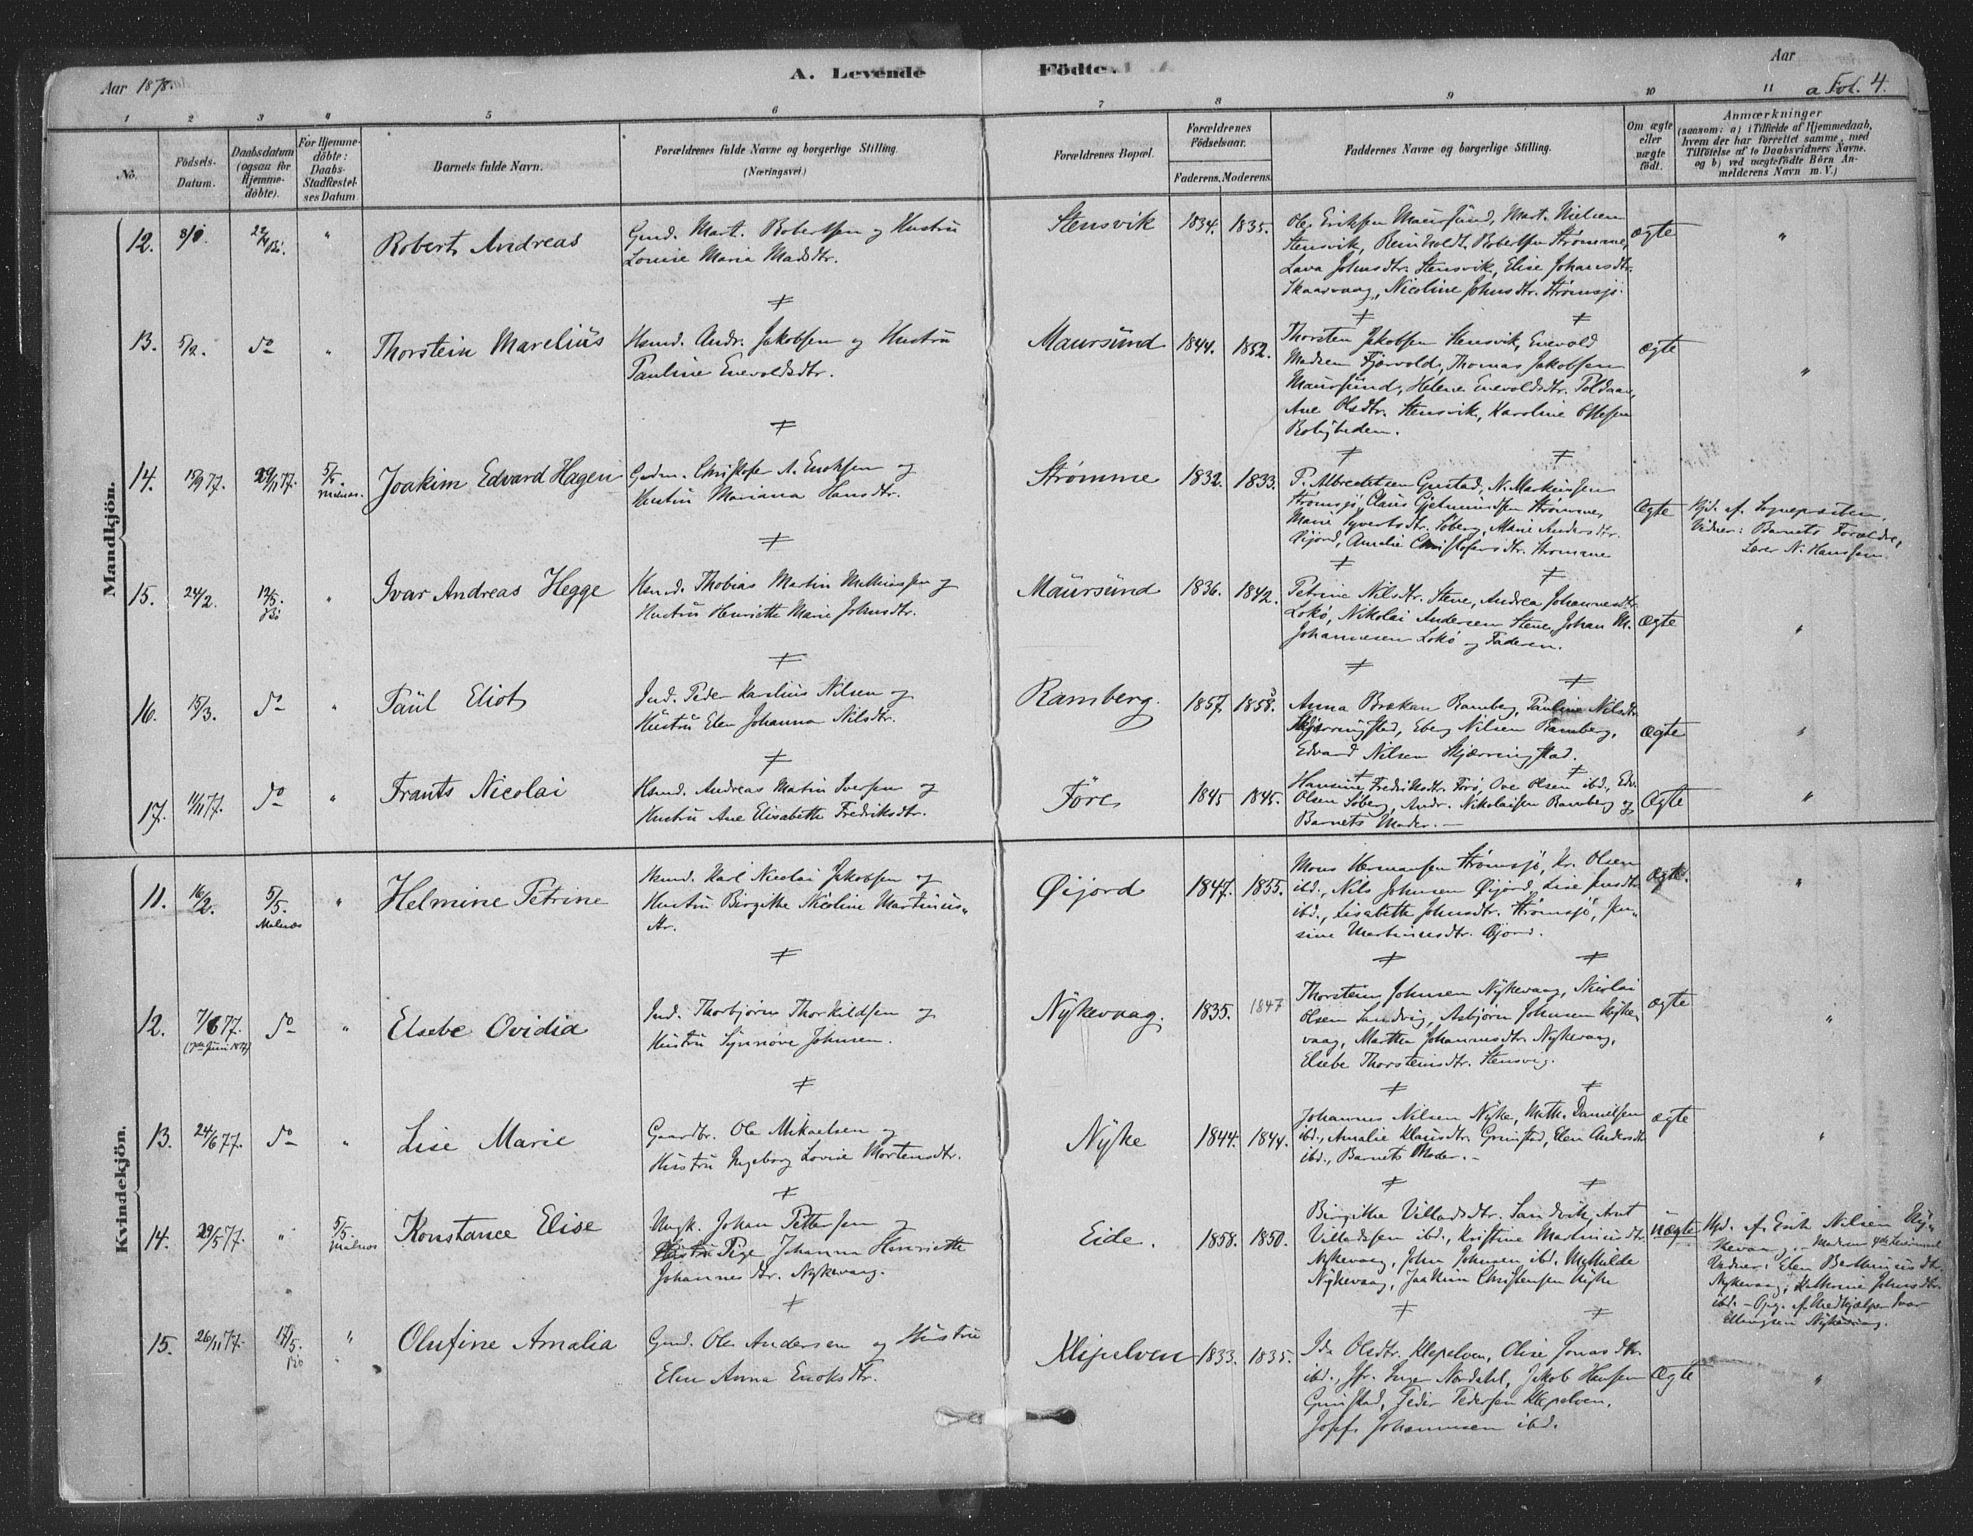 Aar 1878.
A. Levende
Födte.
Aar
a Fol. 4.
1 2 3 4 5 6 7 8 9 10 11
No.
Födsels-
Datum.
Daabsdatum
(ogsaa for
Hjemme-
döbte).
For Hjemme-
döbte:
Daabs-
Stadfæstel-
ses Datum
Barnets fulde Navn.
Forældrenes fulde Navne og borgerlige Stilling.
(Næringsvei)
Forældrenes Bopæl.
Forældrenes
Födselsaar.
Faderens. Moderens.
Faddernes Navne og borgerlige Stilling.
Om ægte
eller
uægte
födt.
Anmærkninger
(saasom: a) i Tilfælde af Hjemmedaab,
hvem der har forrettet samme, med
Tilföielse af to Daabsvidners Navne.
og b) ved uægtefödte Börn An-
melderens Navn m. V.)
Mandkjön.
12.
Robert Andreas
Gmd. Mart. Robertsen og Hustru
Louise Maria Madsdtr.
Stensvik 1834. 1835.
Ole Eriksen Maursund, Mart. Nielsen
Stensvik, Reinholdt Robertsen Strømme,
Lava Johnsdtr. Stensvik, Elise Johansdtr.
Skaarvaag, Nicoline Johnsdtr. Strømsjö.
ægte
"
13. 5/2. do "
Thorstein Marelius
Hsmd. Andr. Jakobsen og Hustru
Pauline Enevoldsdtr.
Maursund 1844. 1852.
Thorsten Jakobsen Stensvik, Enevold
Madsen Fjærvold, Thomas Jakobsen
Maursund, Helene Enevoldsdtr.
Ane Olsdtr. Stensvik, Karoline
ægte
"
14. 15/9 77. 29/11 77. 5/5. Malnæs.
Joakim Edvard Hagen
Gmd. Christofer A. Enoksen og
Hustru Mariana Hansdtr.
Strømme 1832. 1833.
P. Albrechtsen Grustad, N. Martinsen
Strømsjö, Claus Gjetmundsen Strømme,
Marie Syvertsdtr. Söberg, Marie Andersdtr.
Øijord, Amalie Christofersdtr. Strømme
Ægte
Hjd. af Sognepræsten,
Vidner: Barnets Forældre,
Lærer N. Hanssen.
15. 24/2. 12/5. Bö "
Ivar Andreas Hegge
Hsmd. Thobias Martin Mathiassen og
Hustru Henriette Marie Johnsdtr.
Maursund 1836. 1842.
Petrine Nilsdtr. Stene, Andrea Johannesdtr.
Lokö, Nikolai Andersen Stene, Johan M.
Johannesen Lokö og Faderen.
Ægte
"
16. 15/3. do "
Paul Eliot
Ind. Peder Karelius Nilsen og
Hustru Elen Johanna Nilsdtr.
Ramberg. 1857. 1858.
Anna Brækan Ramberg, Pauline Nilsdtr.
Skjærringstad, Eberg Nilsen Ramberg,
Edvard Nilsen Skjærringstad.
Ægte
"
17. 11/11 77. do "
Frants Nicolai
Hsmd. Andreas Matin Iversen og
Hustru Ane Elisabeth Fredriksdtr.
Före 1845 1845.
Hansine Fredriksdtr. Förö, Ove Olsen ibd., Edv.
Olsen Söberg, Andr. Nikolaisen Ramberg og
Barnets Moder.
Ægte
"
Kvindekjön.
11. 16/2. 5/5. Malnæs "
Helmine Petrine
Hsmd. Karl Nicolai Jakobsen og
Hustru Birgithe Nicoline Martinius-
dtr.
Øijord 1847. 1855.
Mons Hermansen Strømsjö, Kr. Olsen
ibd., Nils Johnsen Øijord, Lise Jensdtr.
ibd., Lisabeth Johnsdtr. Strømsjö, Jen-
sine Martinusdtr. Øijord.
Ægte.
"
12. 7/6 77. (7de Juni 1877) do "
Elsebe Ovidia
Ind. Thorbjörn Thorkildsen og
Hustru Synnöve Johnsen.
Nykevaag. 1835. 1847
Thorstein Johnsen Nykevaag, Nicolai
Olsen Sandvig, Asbjörn Johnsen Nyke-
vaag, Martha Johannesdtr. Nykevaag,
Elsebe Thorsteinsdtr. Stensvig.
Ægte
"
13. 24/6 77. do "
Lise Marie
Gaardbr. Ole Mikaelsen og
Hustru Ingeborg Lovise Mortensdtr.
Nyke 1844. 1844.
Johannes Nilsen Nyke, Math. Danielsen
ibd., Amalie Klausdtr. Grimstad, Elen Andersdtr.
ibd., Barnets Moder.
ægte
"
14. 29/5 77. " 5/5. Malnæs
Konstance Elise
Ungk. Johan Pettersen og
Hustru Pige Johanna Henriette
Johannesdtr. Nykevaag.
Eide. 1858. 1850.
Birgithe Villadsdtr. Sandvik, Arnt
Villadssen ibd., Kristine Martinusdtr.
Nykevaag, John Johnsen ibd. Mathilde
Nykevaag, Joakim Christensen Nyke
uægte
Hjd. af Erik Nilsen Ny-
kevaag,
Vidner: Elen Berthinusdtr.
Nykevaag, Kathrine Johnsdtr.
ibd. – Opg. af Medhjælper Ivar
Ellingsen Nykevaag.
15. 26/11 77. 12/5. Bö "
Olufine Amalia
Gmd. Ole Andersen og Hustru
Elen Anna Enoksdtr.
Klepelven 1833. 1835.
Ida Olsdtr. Klepelven, Olise Jonasdtr.
ibd., Jfr. Inger Nordahl, Jakob Hansen
Grimstad, Peder Pedersen Klepelven,
Johannesen ibd.
Ægte
"